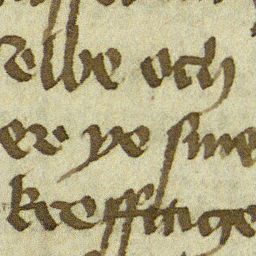 elbe och
er ye sine
krefftige